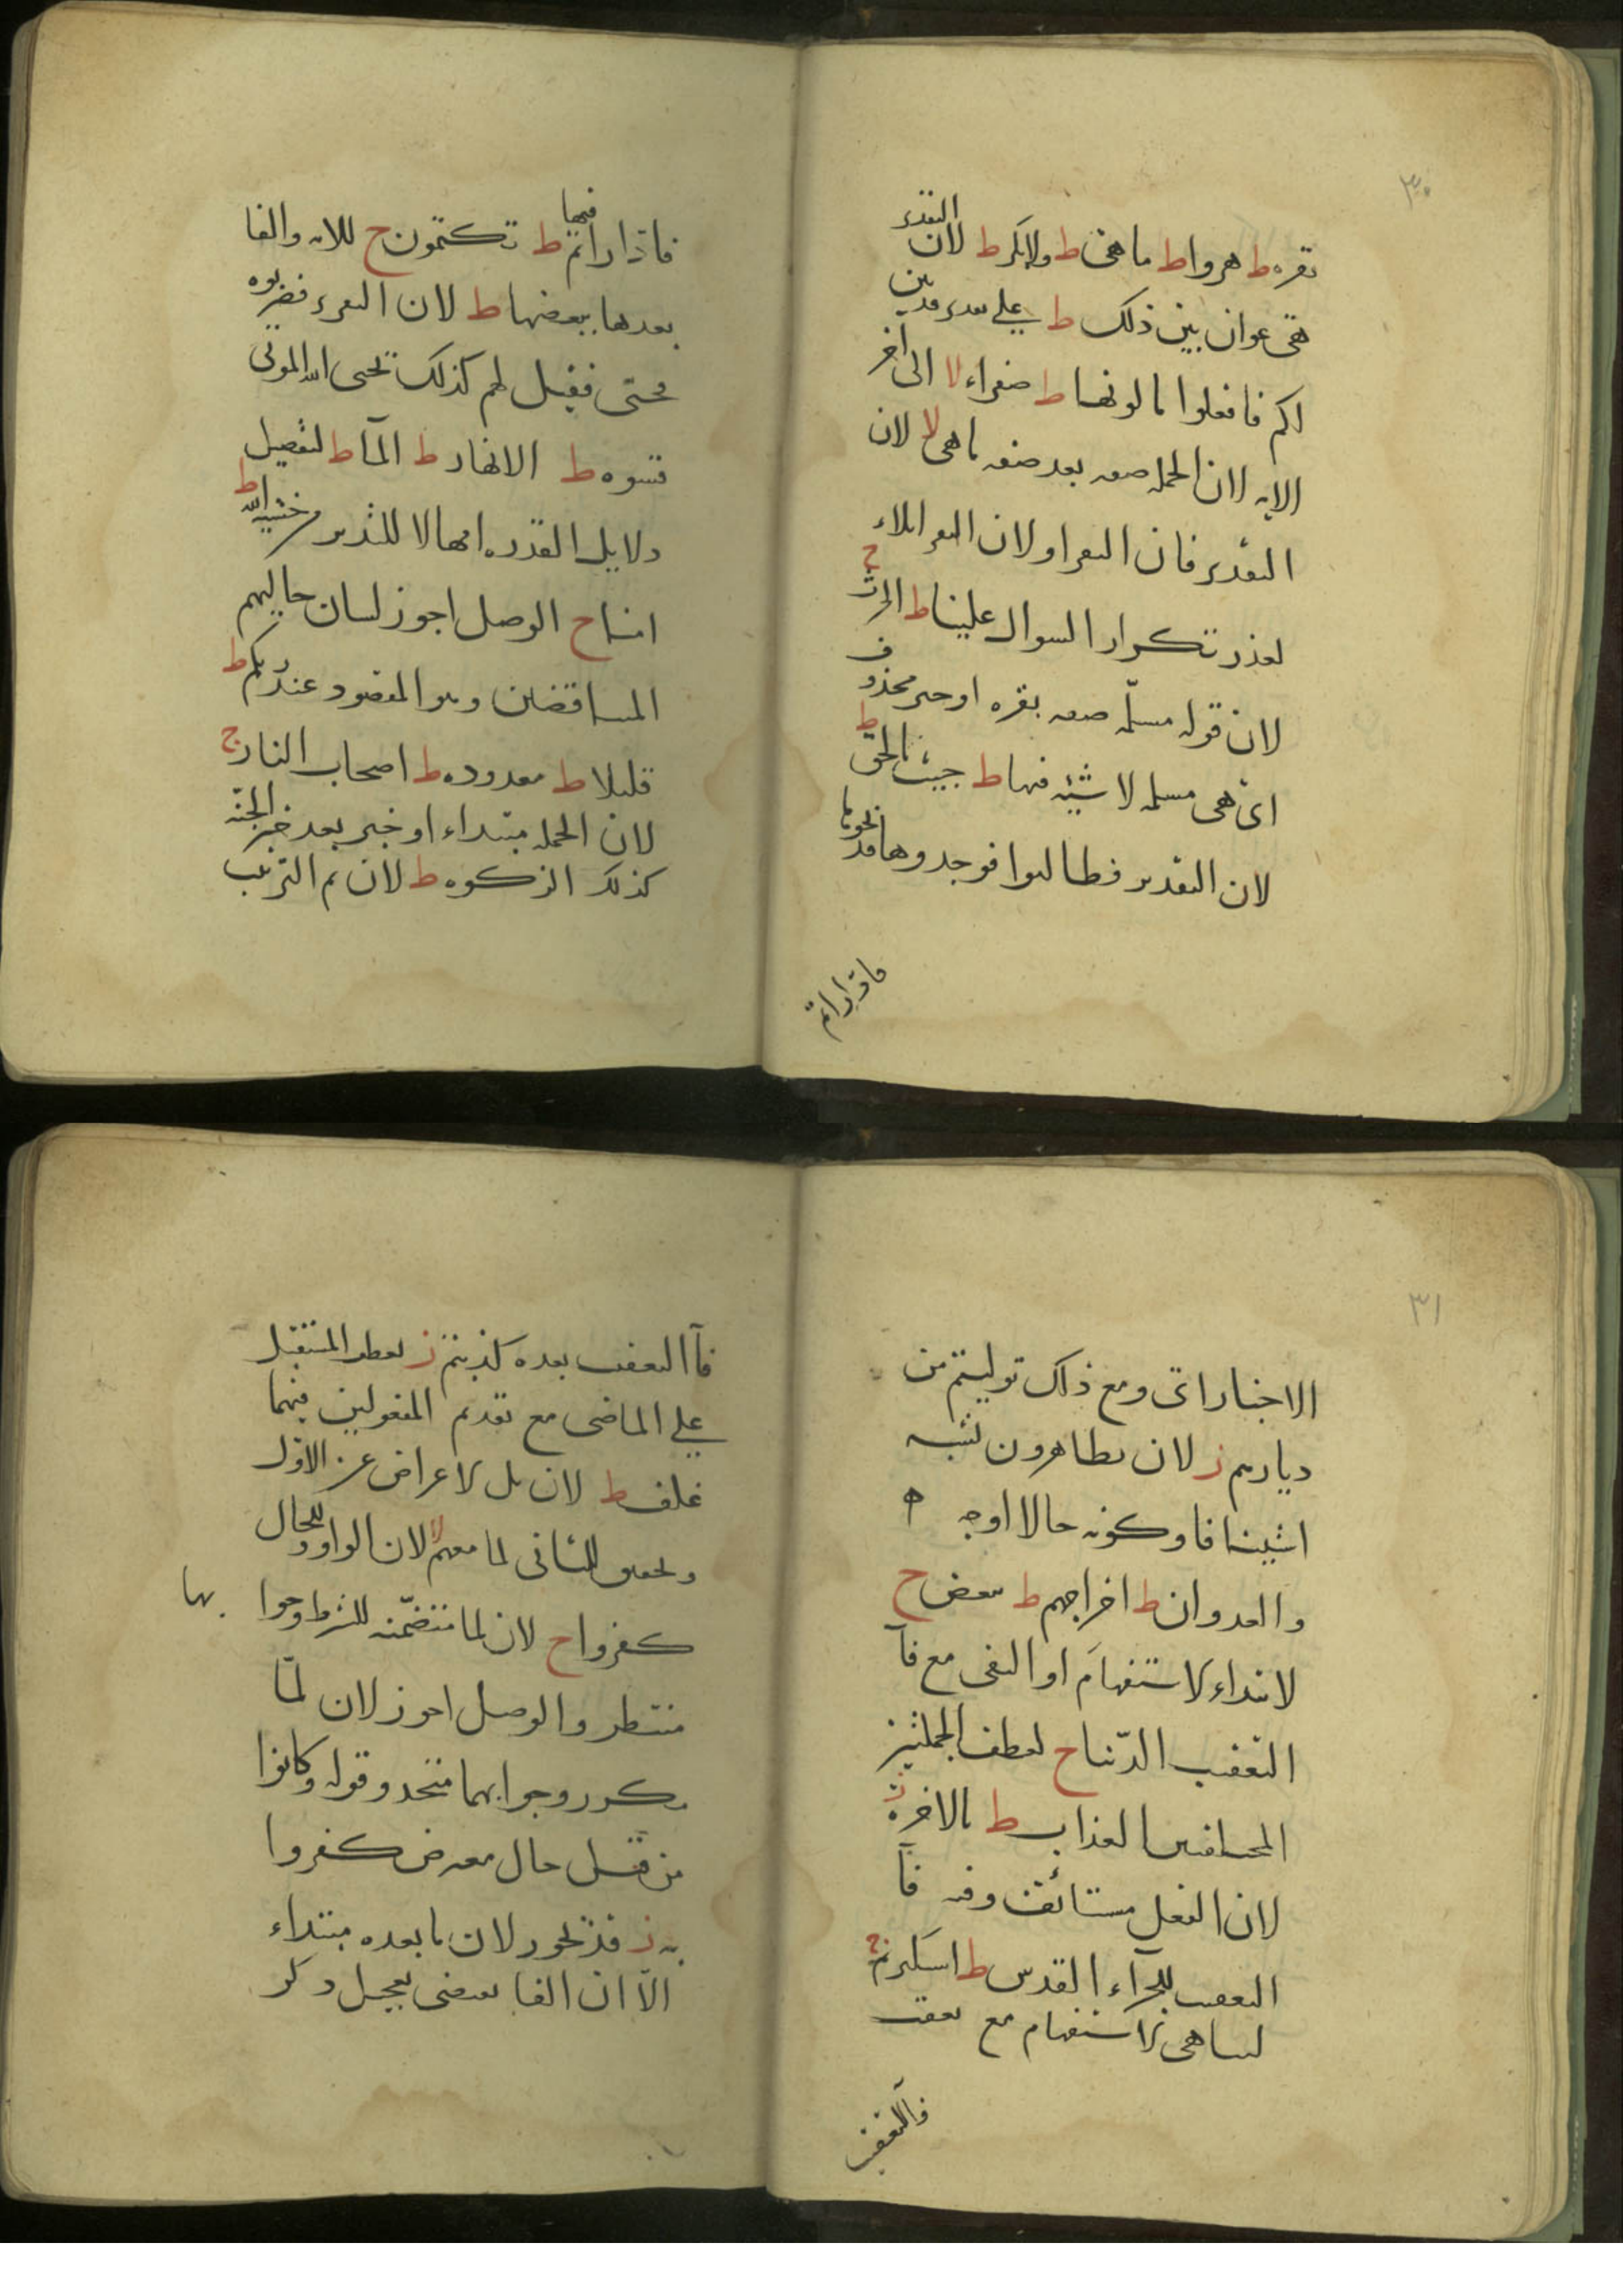 ٣٠
بقره ط هروا ط ما هی ط ولا بكر ط لان التقدير
هی عوان بین ذلک ط علی تقدير قد بین
لکم فافعلوا ما لونها ط صفراء لا الی آخر
الایه لان الجمله صفه بعد صفه ما هی لا لان
التقدیر فان البقر او لان البقر ابلاء
لعذر تکرار السوال علینا ط الحرث ج
لان قوله مسلّمه صفه بقره او خبر محذوف
ای هی مسلمه لا شیه فیها ط جیت بالحق ط
لان التقدیر فطالبوا فوجدوها فذبحوها
فادّاراتم
فادّاراتم فیها ط تکتمون ج للایه والفا
بعدها ببعضها ط لان التقدير فضربوه
فحیی فقیل لهم کذلک یحیی الله الموتی
قسوه ط الانهار ط المآ ط لتفصیل
دلایل القدره امهالا للتدبر من خشیه الله ط
امنا ح الوصل اجوز لبیان حالیهم
المتناقضین وهو المقصود عند ربکم ط
قلیلا ط معدوده ط اصحاب النار ج
لان الجمله مبتداء او خبر بعد خبر الجنّه
کذلک الزکوه ط لان ثم لترتیب
٣١
الاخبار ای ومع ذلک تولیتم من
دیارهم ز لان تظاهرون یشبه
استینافا وکونه حالا اوجه
والعدوان ط اخراجهم ط ببعض ج
لابتداء الاستفهام او النفی مع فآ
التعقیب الدّنیا ح لعطف الجملتین
المختلفتین العذاب ط بالاخره ز
لان الفعل مستانف وفیه فآ
التعقیب للجزآء القدس ط استکبرتم ج
لتناهی الاستفهام مع تعقب
فآ التعقیب
فآ التعقیب بعده کذبتم ز لعطف المستقبل
علی الماضی مع تقدم المفعولین فیهما
غلف ط لان بل لاعراض عن الاوّل
وتحقیق للثانی لما معهم لا لان الواو للحال
کفروا ح لان لما متضمّنه للشرط وجوا
بها
منتظر والوصل اجوز لان لمّا
مکرر وجوابهما متحد وقوله وکانوا
من قبل حال معترض کفروا
به ز قد یجوز لان ما بعده مبتداء
الّا ان الفا یقتضی تعجیل ذکر